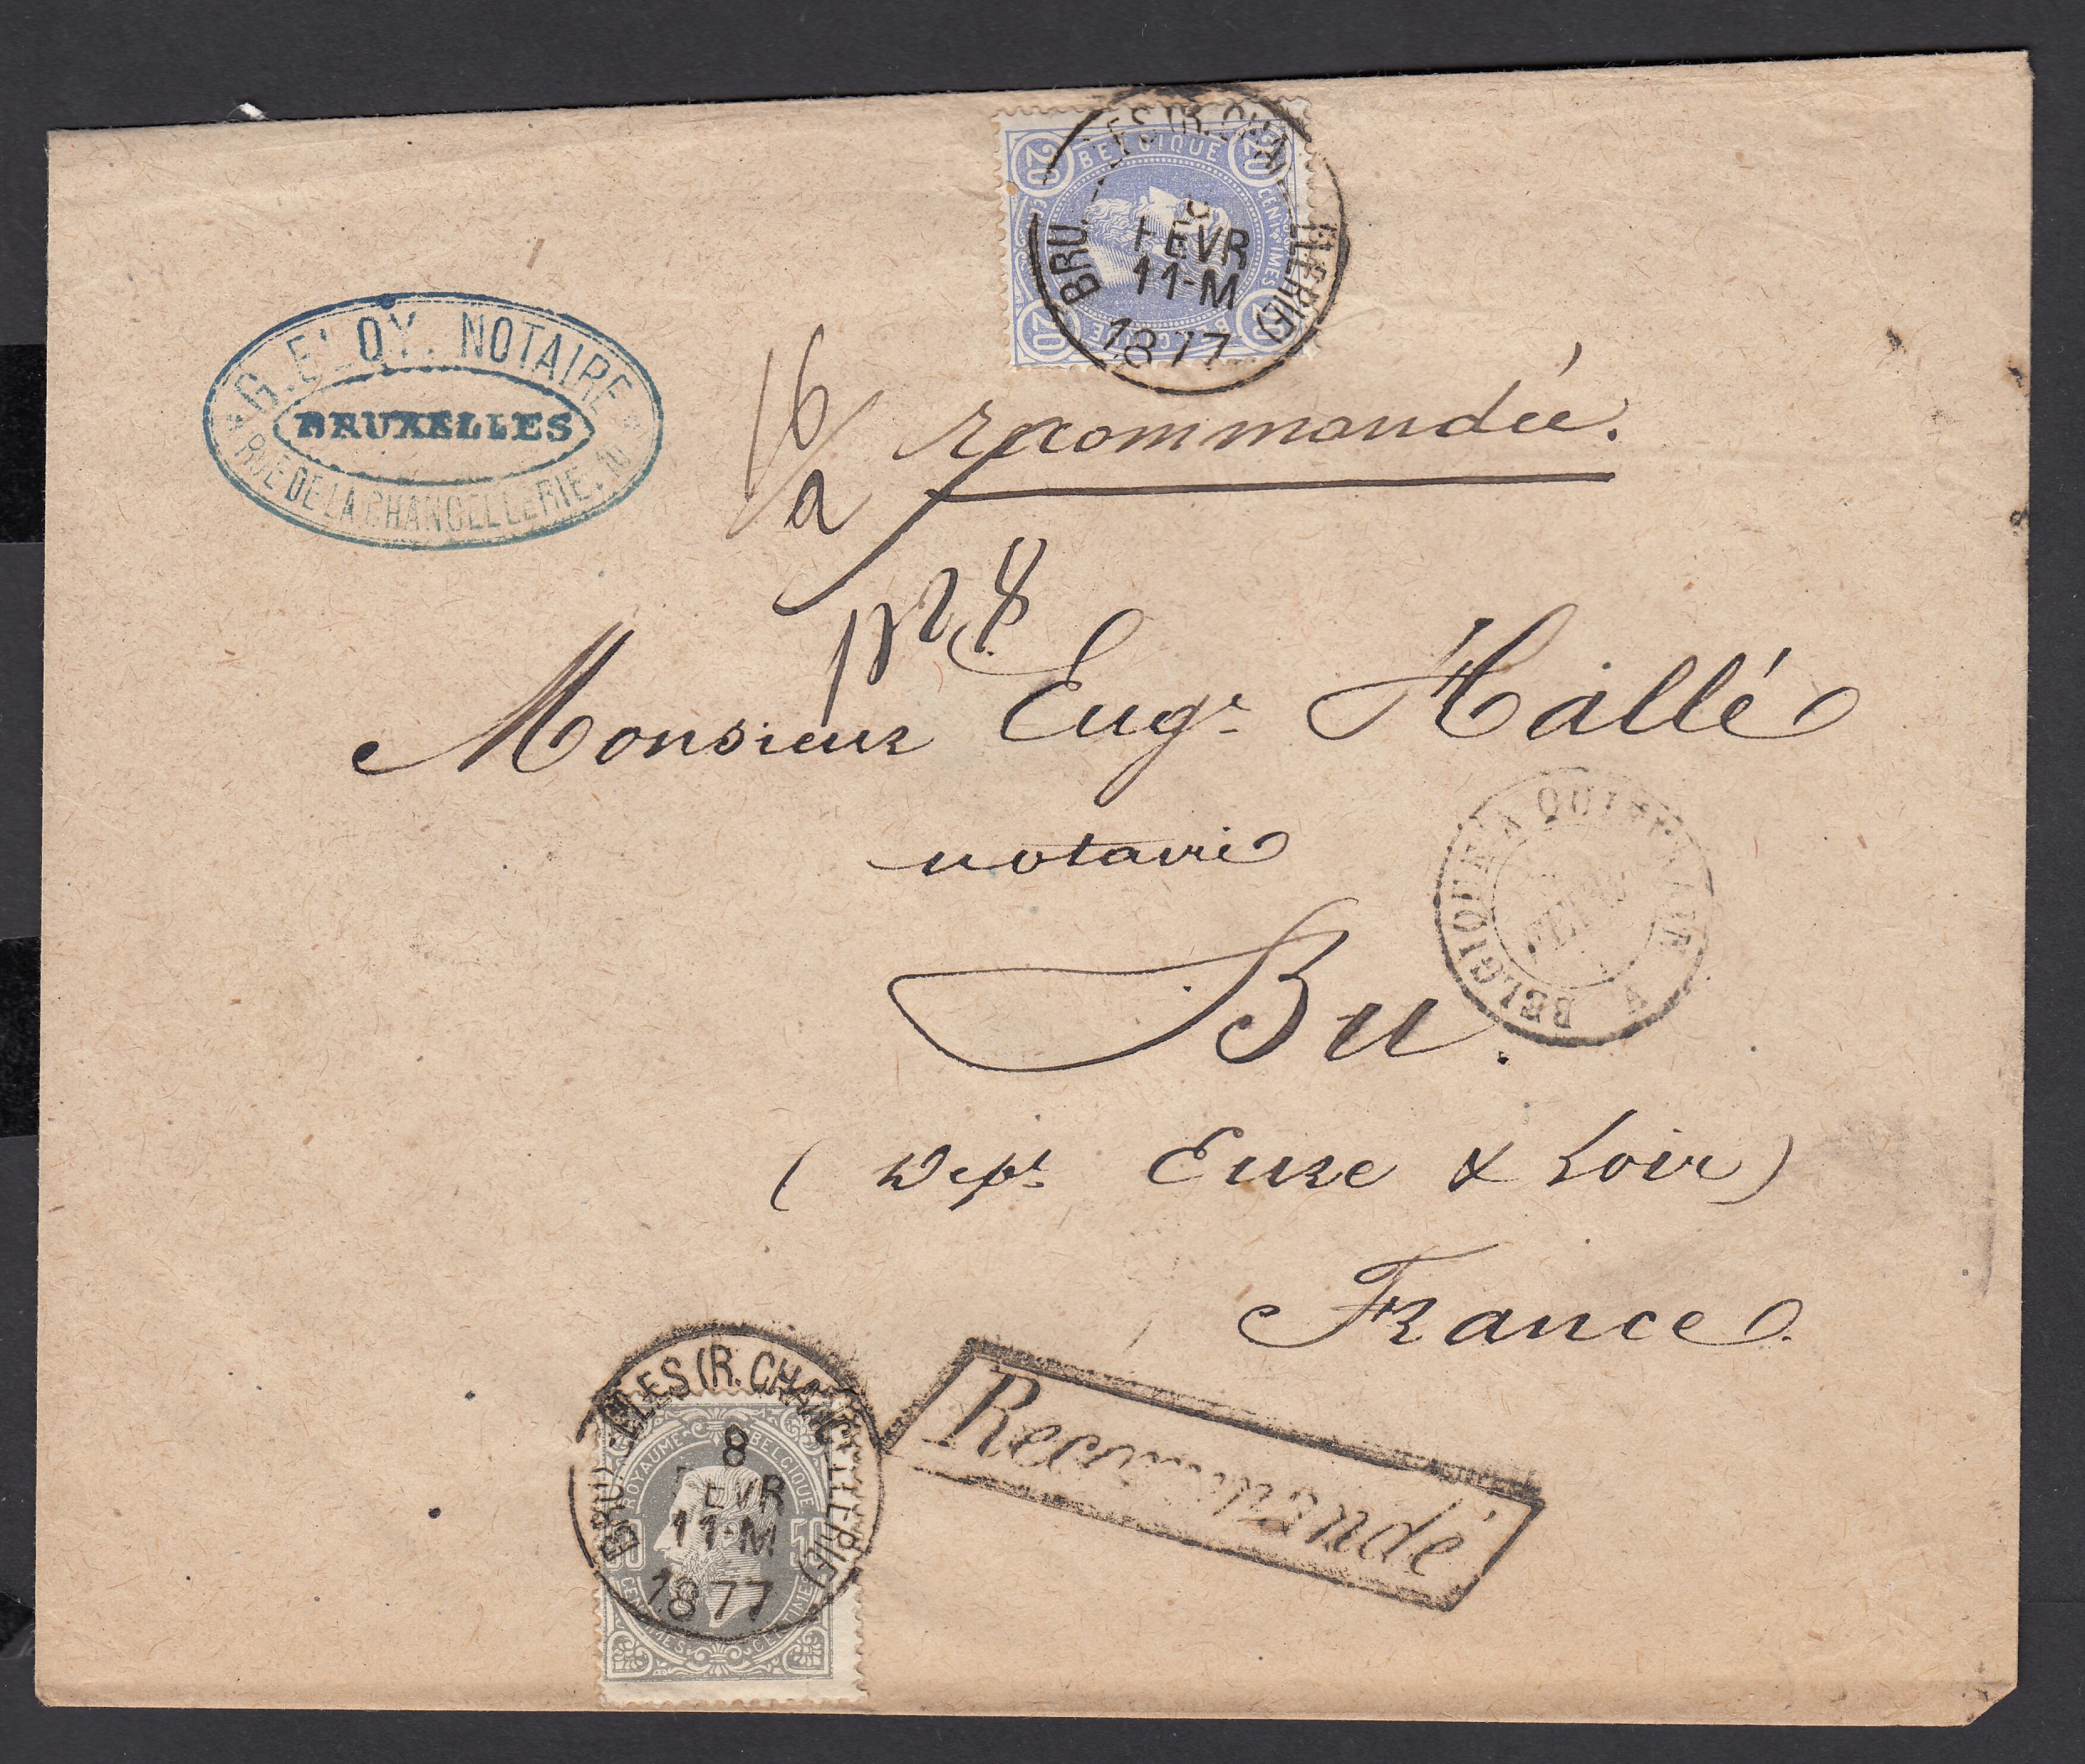 BELGIQUE
20 20
CENTIMES
20
BRU. ES (R. CHAN ELLERIE)
FEVR
11-M
1877
G. ELOY, NOTAIRE
BRUXELLES
RUE DE LA CHANCELLERIE, 10
16/2
recommandée.
Monsieur Eugᵉ Hallé
notaire
Bu.
(Dépt Eure & Loir)
France.
BELGIQUE A QUIEVRAIN
BRU .LLES (R. CHANCELLERIE)
8
FEVR
11-M
1877
ROYAUME BELGIQUE
50
CENTIMES CENTIMES
Recommandé